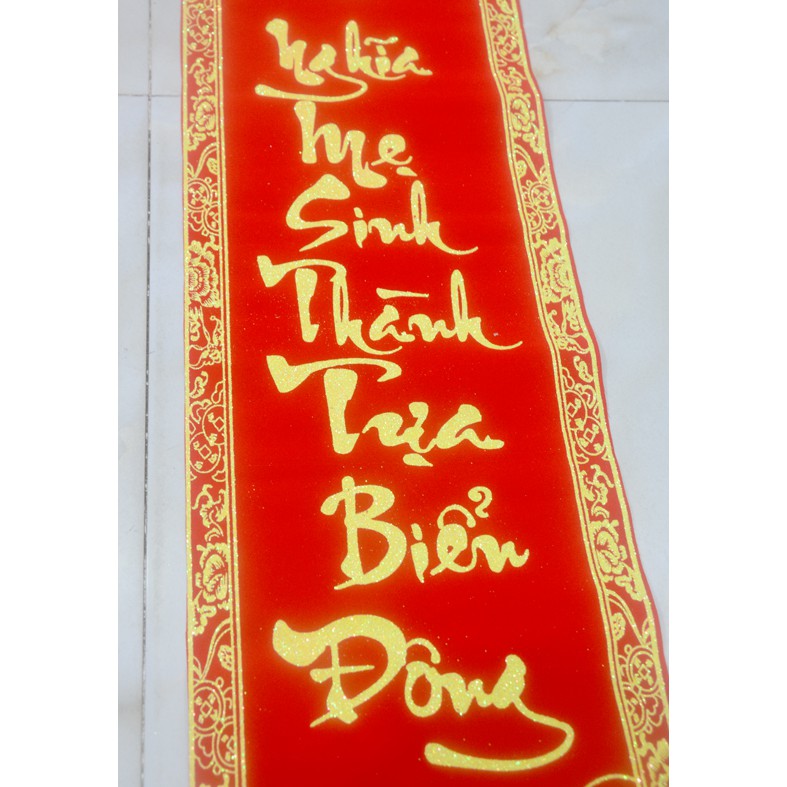 Nghĩa
Mẹ
Sinh
Thành
Tựa
Biển
Đông